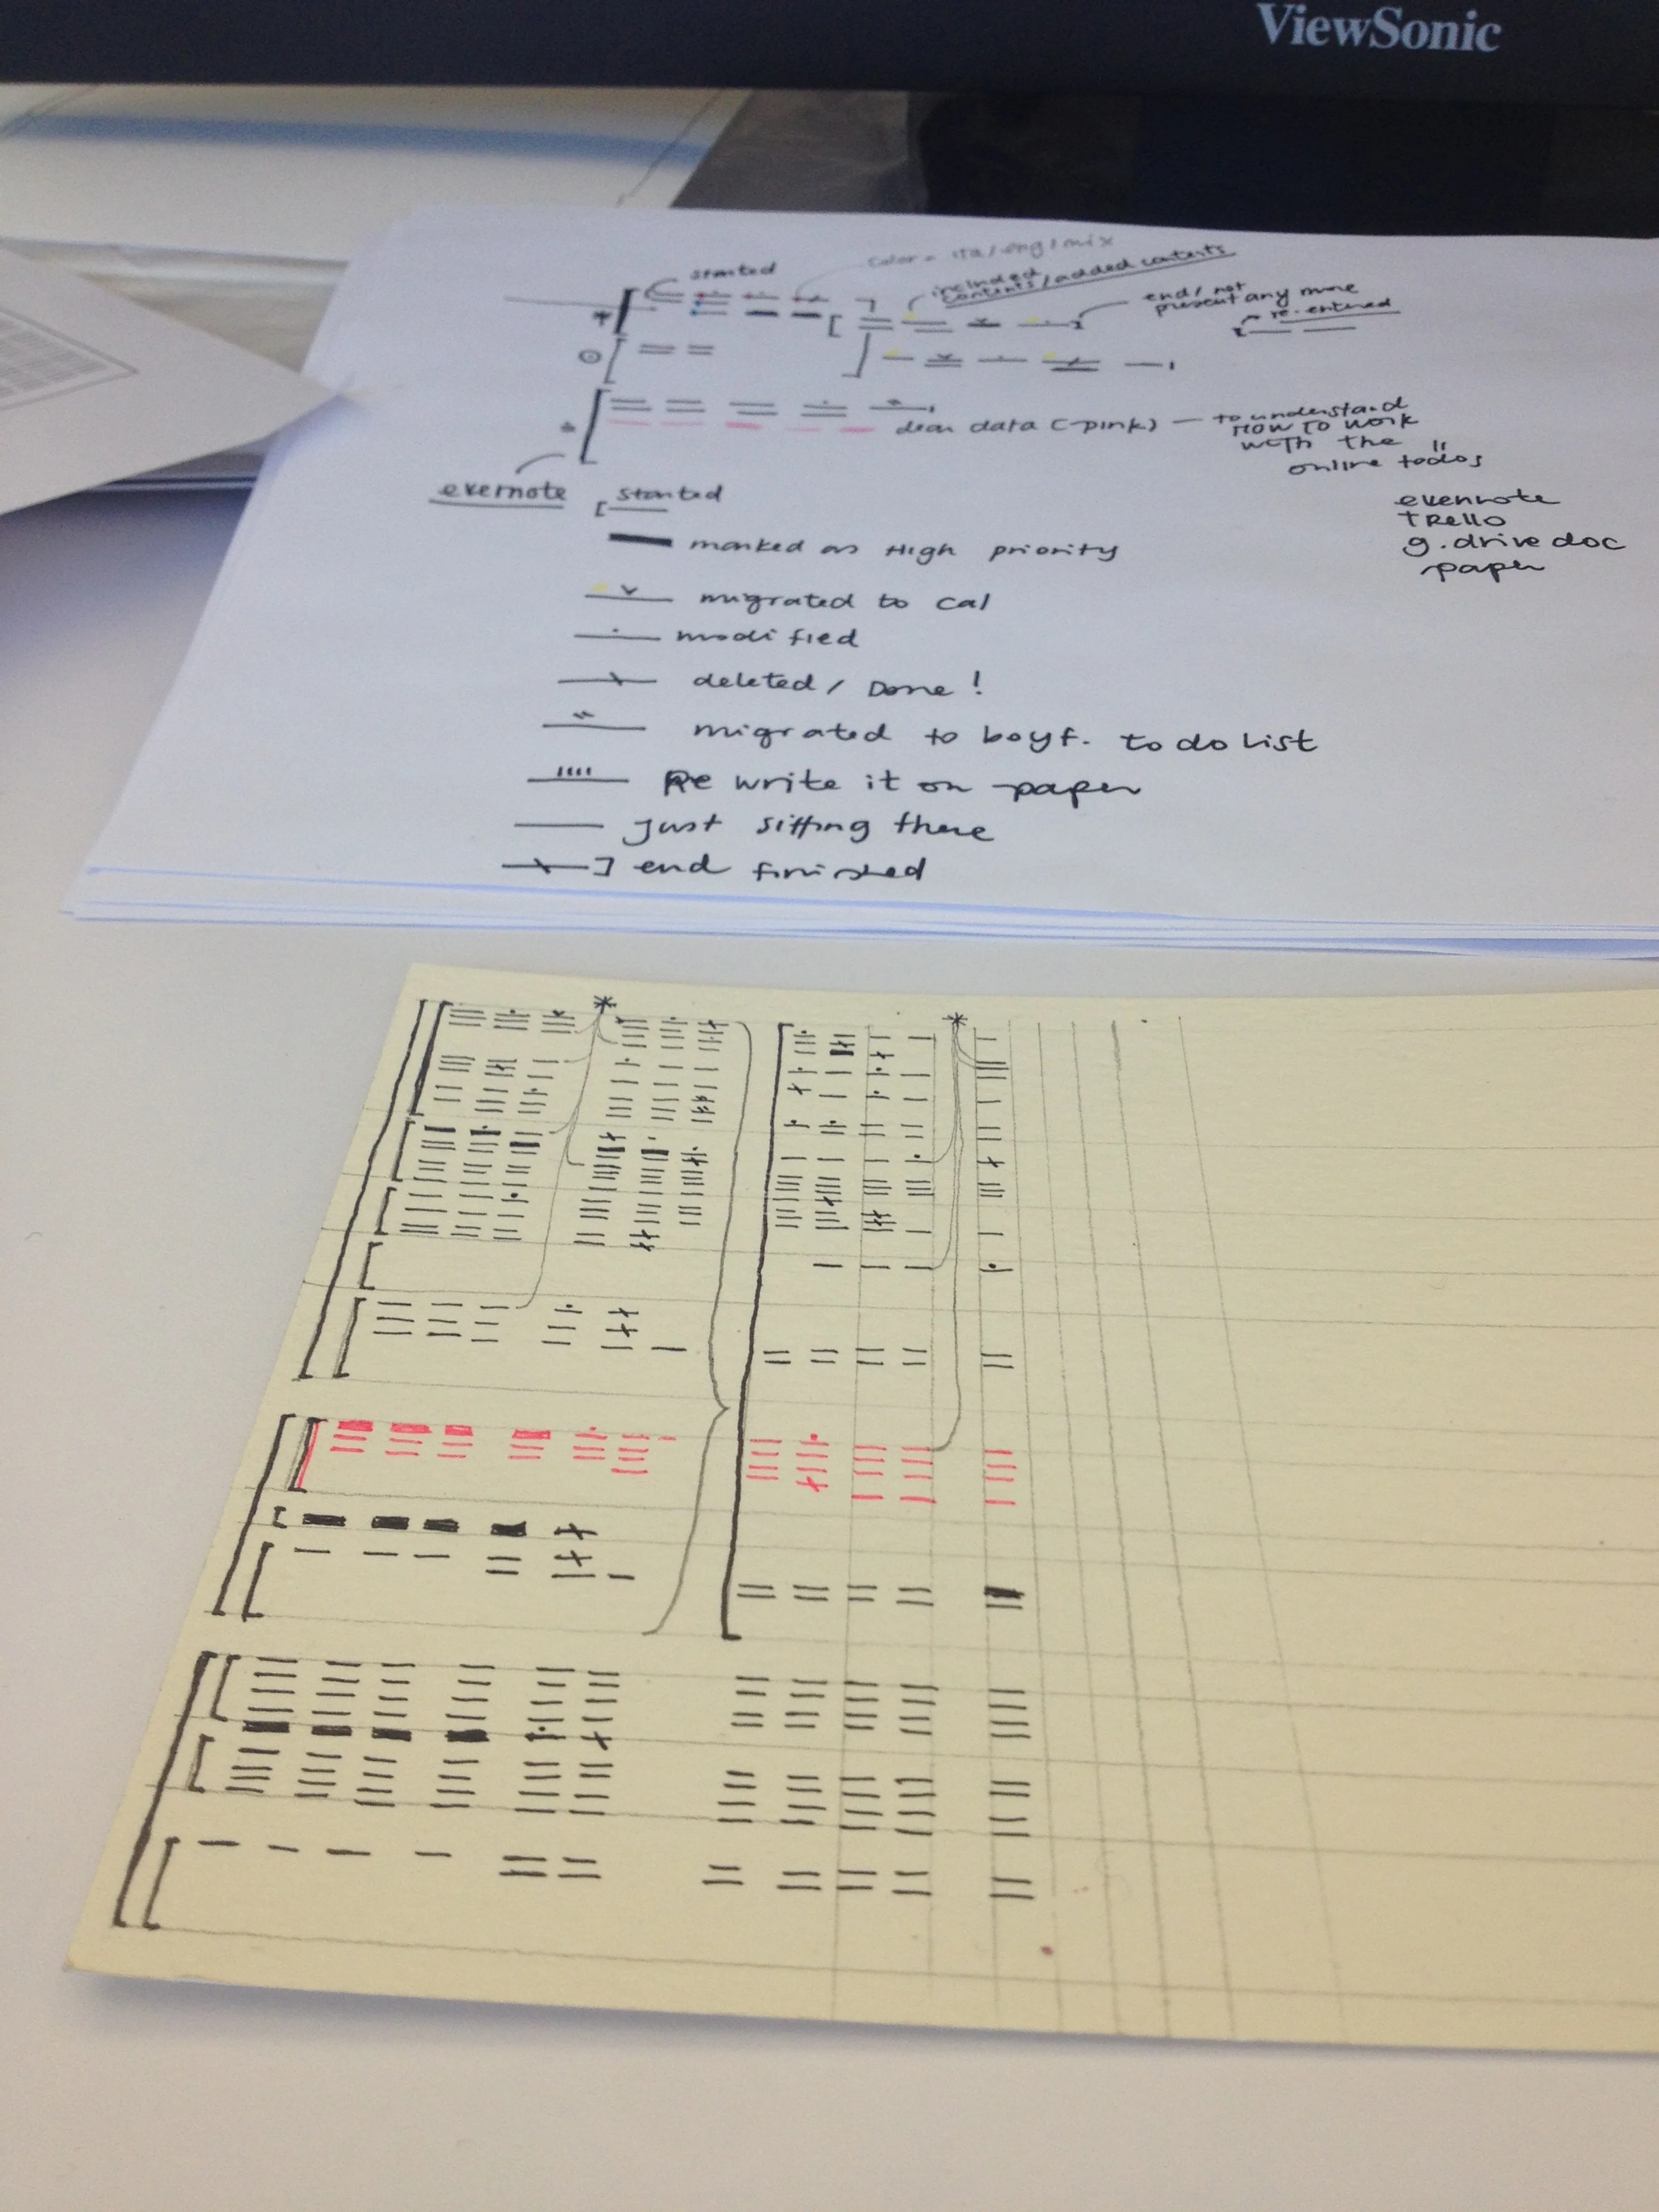 ViewSonic
started
color = ita / eng / mix
included
contents / added contents
end / not
present any more
re-entered
dear data (-pink) — to understand
HOW TO WORK
with the
online todos
evernote
started
evernote
trello
g.drive doc
paper
marked as High priority
migrated to cal
modified
deleted / Done !
migrated to boyf. to do list
Re write it on paper
Just sitting there
end finished